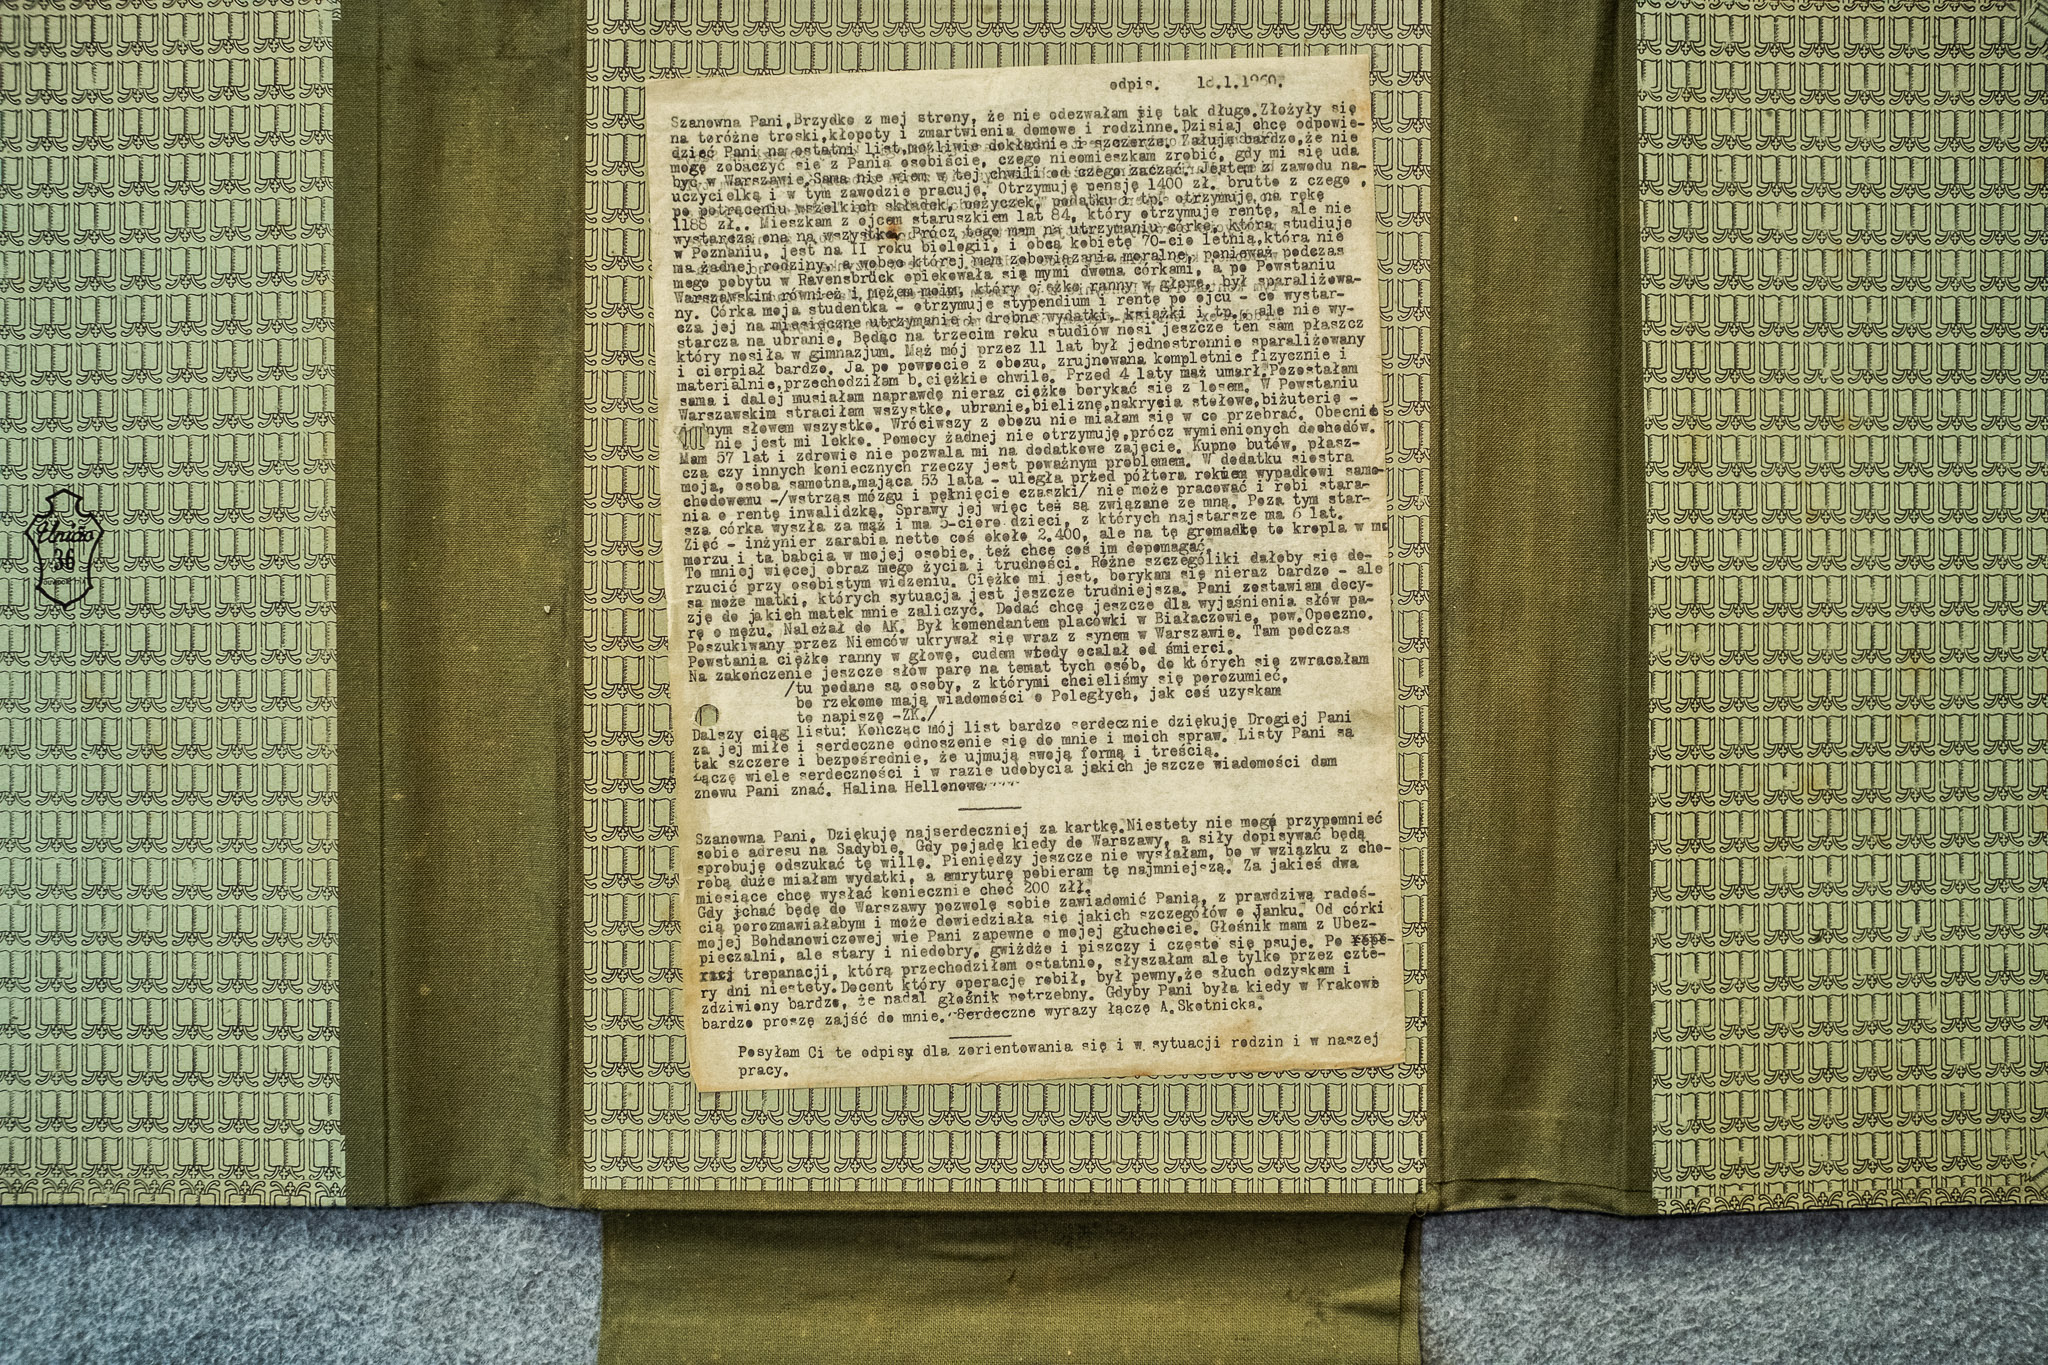 União
36
odpis. 18.1.1960.
Szanowna Pani,Brzydko z mej strony, że nie odezwałam się tak długo.Złożyły się
na toróżne troski,kłopoty i zmartwienia domowe i rodzinne.Dzisiaj chcę odpowie-
dzieć Pani na ostatni list,możliwie dokładnie i szczerze. Żałuję bardzo,że nie
mogę zobaczyć się z Panią osobiście, czego nieomieszkam zrobić, gdy mi się uda
być w Warszawie.Sama nie wiem w tej chwili od czego zacząć. Jestem z zawodu na-
uczycielką i w tym zawodzie pracuję. Otrzymuję pensję 1400 zł. brutto z czego ,
po potrąceniu wszelkich składek, pożyczek, podatku i tp. otrzymuję na rękę
1188 zł.. Mieszkam z ojcem staruszkiem lat 84, który otrzymuje rentę, ale nie
wystarcza ona na wszystko. Prócz tego mam na utrzymaniu córkę, która studiuje
w Poznaniu, jest na II roku biologii, i obcą kobietę 70-cio letnią,która nie
ma żadnej rodziny, a wobec której mam zobowiązania moralne, ponieważ podczas
mego pobytu w Ravensbrück opiekowała się mymi dwoma córkami, a po Powstaniu
Warszawskim również i mężem moim, który ciężko ranny w głowę, był sparaliżowa-
ny. Córka moja studentka - otrzymuje stypendium i rentę po ojcu - co wystar-
cza jej na miesięczne utrzymanie i drobne wydatki, książki i tp., ale nie wy-
starcza na ubranie. Będąc na trzecim roku studiów nosi jeszcze ten sam płaszcz
który nosiła w gimnazjum. Mąż mój przez 11 lat był jednostronnie sparaliżowany
i cierpiał bardzo. Ja po powrocie z obozu, zrujnowana kompletnie fizycznie i
materialnie,przechodziłam b.ciężkie chwile. Przed 4 laty mąż umarł.Pozostałam
sama i dalej musiałam naprawdę nieraz ciężko borykać się z losem. W Powstaniu
Warszawskim straciłam wszystko, ubranie,bieliznę,nakrycia stołowe,biżuterię -
jednym słowem wszystko. Wróciwszy z obozu nie miałam się w co przebrać. Obecnie
nie jest mi lekko. Pomocy żadnej nie otrzymuję,prócz wymienionych dochodów.
Mam 57 lat i zdrowie nie pozwala mi na dodatkowe zajęcie. Kupno butów, płasz-
cza czy innych koniecznych rzeczy jest poważnym problemem. W dodatku siostra
moja, osoba samotna,mająca 53 lata - uległa przed półtora rokiem wypadkowi samo-
chodowemu -/wstrząs mózgu i pęknięcie czaszki/ nie może pracować i robi stara-
nia o rentę inwalidzką. Sprawy jej więc też są związane ze mną. Poza tym star-
sza córka wyszła za mąż i ma 5-cioro dzieci, z których najstarsze ma 6 lat.
Zięć - inżynier zarabia netto coś około 2.400, ale na tę gromadkę to kropla w mo
morzu i ta babcia w mojej osobie, też chce coś im dopomagać.
To mniej więcej obraz mego życia i trudności. Różne szczególiki dałoby się do-
rzucić przy osobistym widzeniu. Ciężko mi jest, borykam się nieraz bardzo - ale
są może matki, których sytuacja jest jeszcze trudniejsza. Pani zostawiam decy-
zję do jakich matek mnie zaliczyć. Dodać chcę jeszcze dla wyjaśnienia słów pa-
rę o mężu. Należał do AK. Był komendantem placówki w Białaczowie, pow.Opoczno.
Poszukiwany przez Niemców ukrywał się wraz z synem w Warszawie. Tam podczas
Powstania ciężko ranny w głowę, cudem wtedy ocalał od śmierci.
Na zakończenie jeszcze słów parę na temat tych osób, do których się zwracałam
/tu podane są osoby, z którymi chcieliśmy się porozumieć,
bo rzekomo mają wiadomości o Poległych, jak coś uzyskam
to napiszę -ZK./
Dalszy ciąg listu: Kończąc mój list bardzo serdecznie dziękuję Drogiej Pani
za jej miłe i serdeczne odnoszenie się do mnie i moich spraw. Listy Pani są
tak szczere i bezpośrednie, że ujmują swoją formą i treścią.
Łączę wiele serdeczności i w razie udobycia jakich jeszcze wiadomości dam
znowu Pani znać. Halina Hellonowa
Szanowna Pani, Dziękuję najserdeczniej za kartkę.Niestety nie mogę przypomnieć
sobie adresu na Sadybie. Gdy pojadę kiedy do Warszawy, a siły dopisywać będą
sprobuję odszukać tę willę. Pieniędzy jeszcze nie wysłałam, bo w związku z cho-
robą duże miałam wydatki, a emryturę pobieram tę najmniejszą. Za jakieś dwa
miesiące chcę wysłać koniecznie choć 200 zł.
Gdy jchać będę do Warszawy pozwolę sobie zawiadomić Panią, z prawdziwą radoś-
cią porozmawiałabym i może dowiedziała się jakich szczegółów o Janku. Od córki
mojej Bohdanowiczowej wie Pani zapewne o mojej głuchocie. Głośnik mam z Ubez-
pieczalni, ale stary i niedobry, gwiżdże i piszczy i często się psuje. Po
trepanacji, którą przechodziłam ostatnio, słyszałam ale tylko przez czte-
ry dni niestety.Docent który operację robił, był pewny,że słuch odzyskam i
zdziwiony bardzo, że nadal głośnik potrzebny. Gdyby Pani była kiedy w Krakowe
bardzo proszę zajść do mnie. Serdeczne wyrazy łączę A.Skotnicka.
Posyłam Ci te odpisy dla zorientowania się i w sytuacji rodzin i w naszej
pracy.